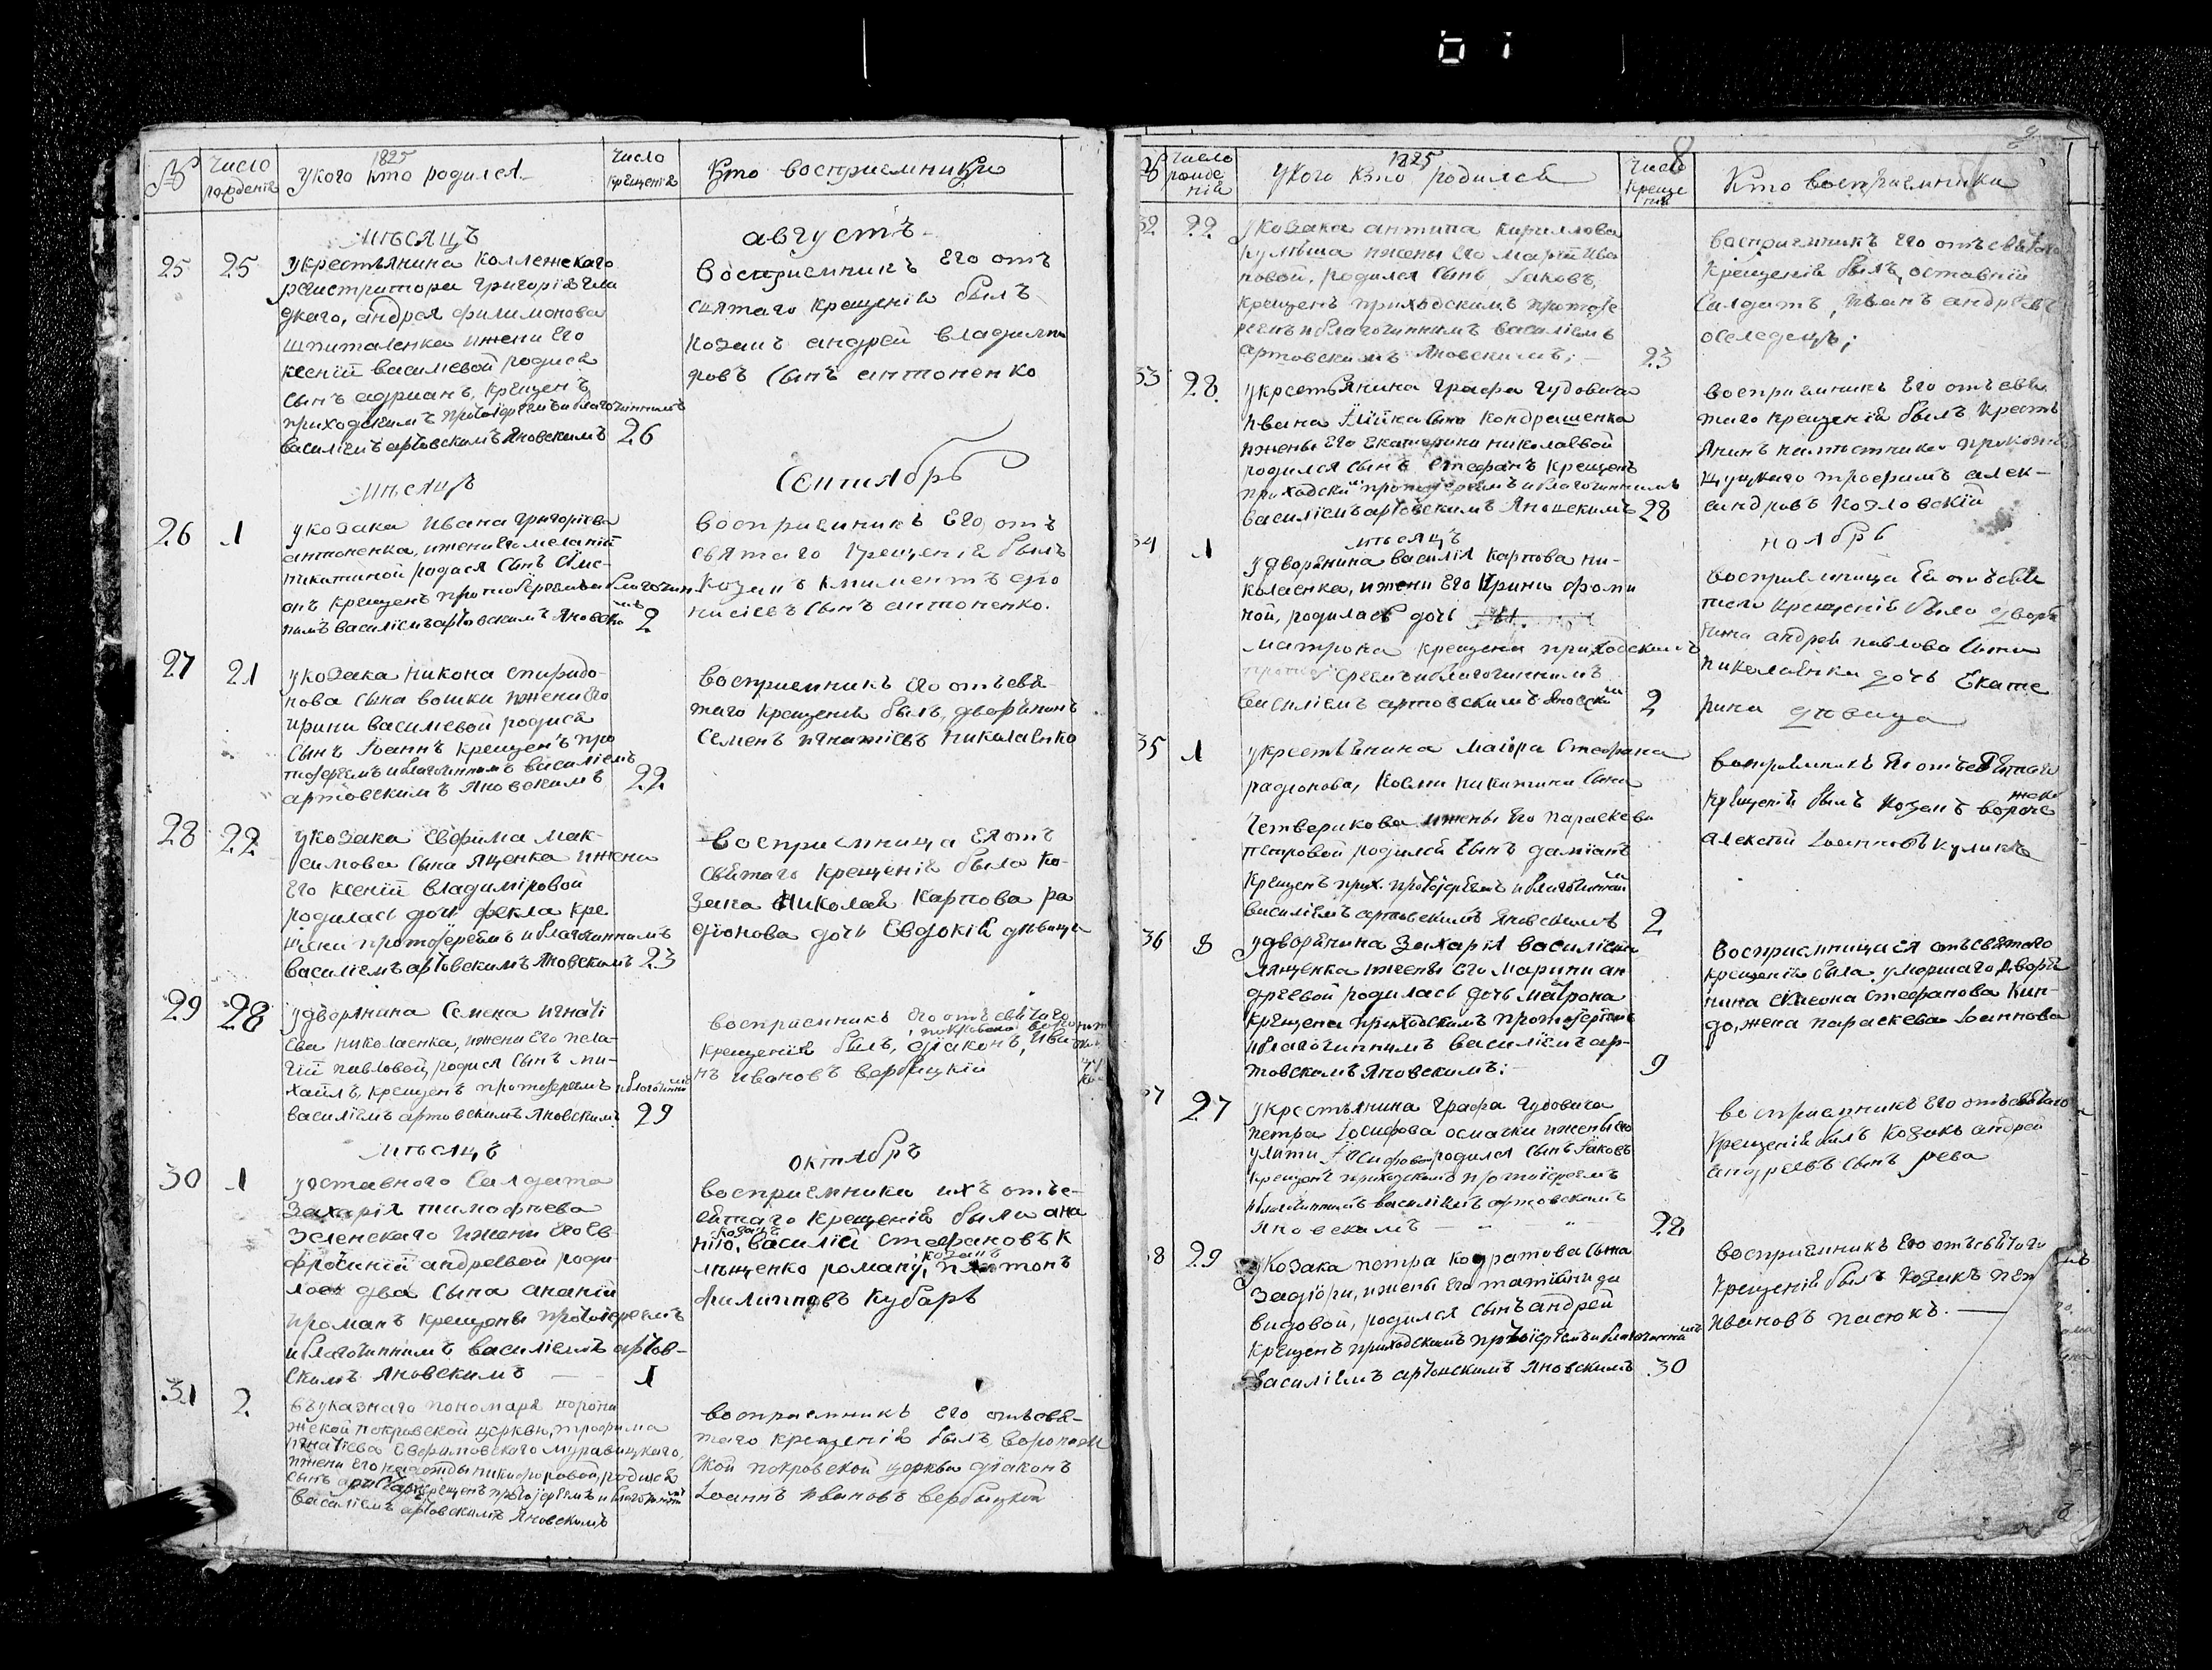 №
Число рожденія
1825
У кого кто родился
Число крещенія
Кто восприемники
мѣсяцъ
августъ
25
25
У крестьянина Коллежскаго
регистратора Григорія
андрея филимонова
шпиталенка и жени Его
ксеніи василиевой родися
сынъ адрианъ, Крещенъ
приходскимъ протоіереемъ и благочиннымъ
василіемъ артовскимъ Яновскимъ
26
восприемникъ Его отъ
святаго крещенія былъ
козакъ андрей владими
ровъ сынъ антоненко
мѣсяцъ
Сентябрь
26
1
У козака ивана григоріева
антоненка, и жени его меланіи
никитиной родися сынъ Симе-
онъ крещенъ протоіереемъ и благочин
нимъ василіемъ артовскимъ Яновски
мъ
2
восприемникъ Его отъ
святаго крещенія былъ
козакъ климентъ дио
нисіевъ сынъ антоненко.
27
21
У козака никона спиридо-
нова сына вошки и жени его
ирини василиевой родися
сынъ Іоаннъ крещенъ про
тоіереемъ и благочиннымъ василіемъ
артовскимъ Яновскимъ
22
восприемникъ Его отъ свя-
таго крещенія былъ, дворянинъ
семенъ игнатіевъ николаенко
28
22
У козака Евфима мак-
симова сына яценка и жени
его ксеніи владиміровой
родилась дочь фекла кре
щена протоіереемъ и благочиннымъ
василіемъ артовскимъ Яновскимъ
23
восприемница Ея отъ
святаго крещенія была ко-
зака Николая Карпова ра
діонова дочь Евдокія дѣвица
29
28
У дворянина Семена игнаті
ева николаенка, и жени Его пела-
гіи павловой, родися сынъ ми-
хаилъ, крещенъ протоіереемъ и благочинни
мъ
василіемъ артовскимъ Яновскимъ
29
восприемникъ Его отъ святаго
крещенія былъ, діаконъ, Иван
нъ ивановъ вербицкій
мѣсяцъ
октябрь
30
1
У оставного Салдата
Захарія тимофѣева
Зеленскаго и жени Его Ев-
фросиніи андреевой роди
лось два сына ананій
и романъ крещены протоіереемъ
и благочиннымъ василіемъ артов-
скимъ Яновскимъ
1
восприемники ихъ отъ с-
вятаго крещенія были ана
козакъ
нію, василій Стефановъ К
козакъ
лѣщенко роману, платонъ
филипповъ кубарь
31
2
въ указнаго пономаря ворони
жской покровской церкви, трофима
игнатіева Евфимовскаго муравицкаго,
и жени Его никифоровой, родися
сынъ крещенъ протоіереемъ и благочинни
мъ
василіемъ артовскимъ Яновскимъ
восприемникъ Его отъ свя-
таго крещенія былъ воронеж
ской покровской церкви діаконъ
Іоаннъ ивановъ вербицкій
8
№
Число рожденія
1825
У кого кто родился
Число крещенія
Кто восприемники
32
22
У козака антипа кириллова
кулѣша и жени его маріи ива
новой, родился сынъ Іаковъ,
крещенъ приходскимъ протоіе
реемъ и благочиннымъ василіемъ
артовскимъ Яновскимъ;
23
восприемникъ Его отъ святаго
крещенія былъ, оставній
Салдатъ, иванъ андреевъ
оселедецъ;
33
28
У крестьянина графа гудовича
ивана сына кондрашенка
и жены Его Екатерини николаевой
родился сынъ Стефанъ крещенъ
приходски мъ протоіереемъ и благочиннымъ
василіемъ артовскимъ Яновскимъ
28
восприемникъ Его отъ свя
таго крещенія былъ крестъ
янинъ
трофимъ алек-
сандровъ козловскій
мѣсяцъ
ноябрь
34
1
У дворянина василія карпова ни-
колаенка, и жени Его Ирини фоми
ной, родилась дочь
матрона крещена приходскимъ
протоіереемъ и благочиннымъ
василіемъ артовскимъ Яновски мъ
2
восприемница Ея отъ свя
таго крещенія была дворя
нина андрея павлова сына
николаенка дочь Екате
рина дѣвица
35
1
У крестьянина маіора Стефана
радіонова, Косми никитина сына
Четверикова и жены Его параскеви
петровой родился сынъ даміанъ
крещенъ прих. протоіереемъ и благочинни мъ
василіемъ артовскимъ Яновскимъ
2
восприемникъ Его отъ святаго
крещенія былъ козакъ вороне
жскій
алексѣй Іоанновъ куликъ
36
8
У дворянина Захарія василіева
лященка и жены его марини ан
дреевой родилась дочь матрона
крещена приходскимъ протоіереемъ
и благочиннымъ василіемъ ар-
товскимъ Яновскимъ:
9
восприемница ея отъ святаго
крещенія была, умершаго дворя
нина Симеона стефанова Кин-
до, жена параскева Іоаннова
37
27
У крестьянина графа гудовича
петра Іосифова осмачки и жены его
улити Іосифовой родился сынъ Іаковъ
крещенъ приходскимъ протоіереемъ
и благочиннымъ василіемъ артовскимъ
Яновскимъ
28
восприемникъ Его отъ святаго
крещенія былъ козакъ андрей
андреевъ сынъ рева
38
29
У козака петра кодратова сына
задіори, и жены Его татіяни да
видовой, родился сынъ андрей
крещенъ приходскимъ протоіереемъ и благочинни мъ
василіемъ артовскимъ Яновскимъ
30
восприемникъ Его отъ святаго
крещенія былъ козакъ пет
ивановъ пасюкъ.